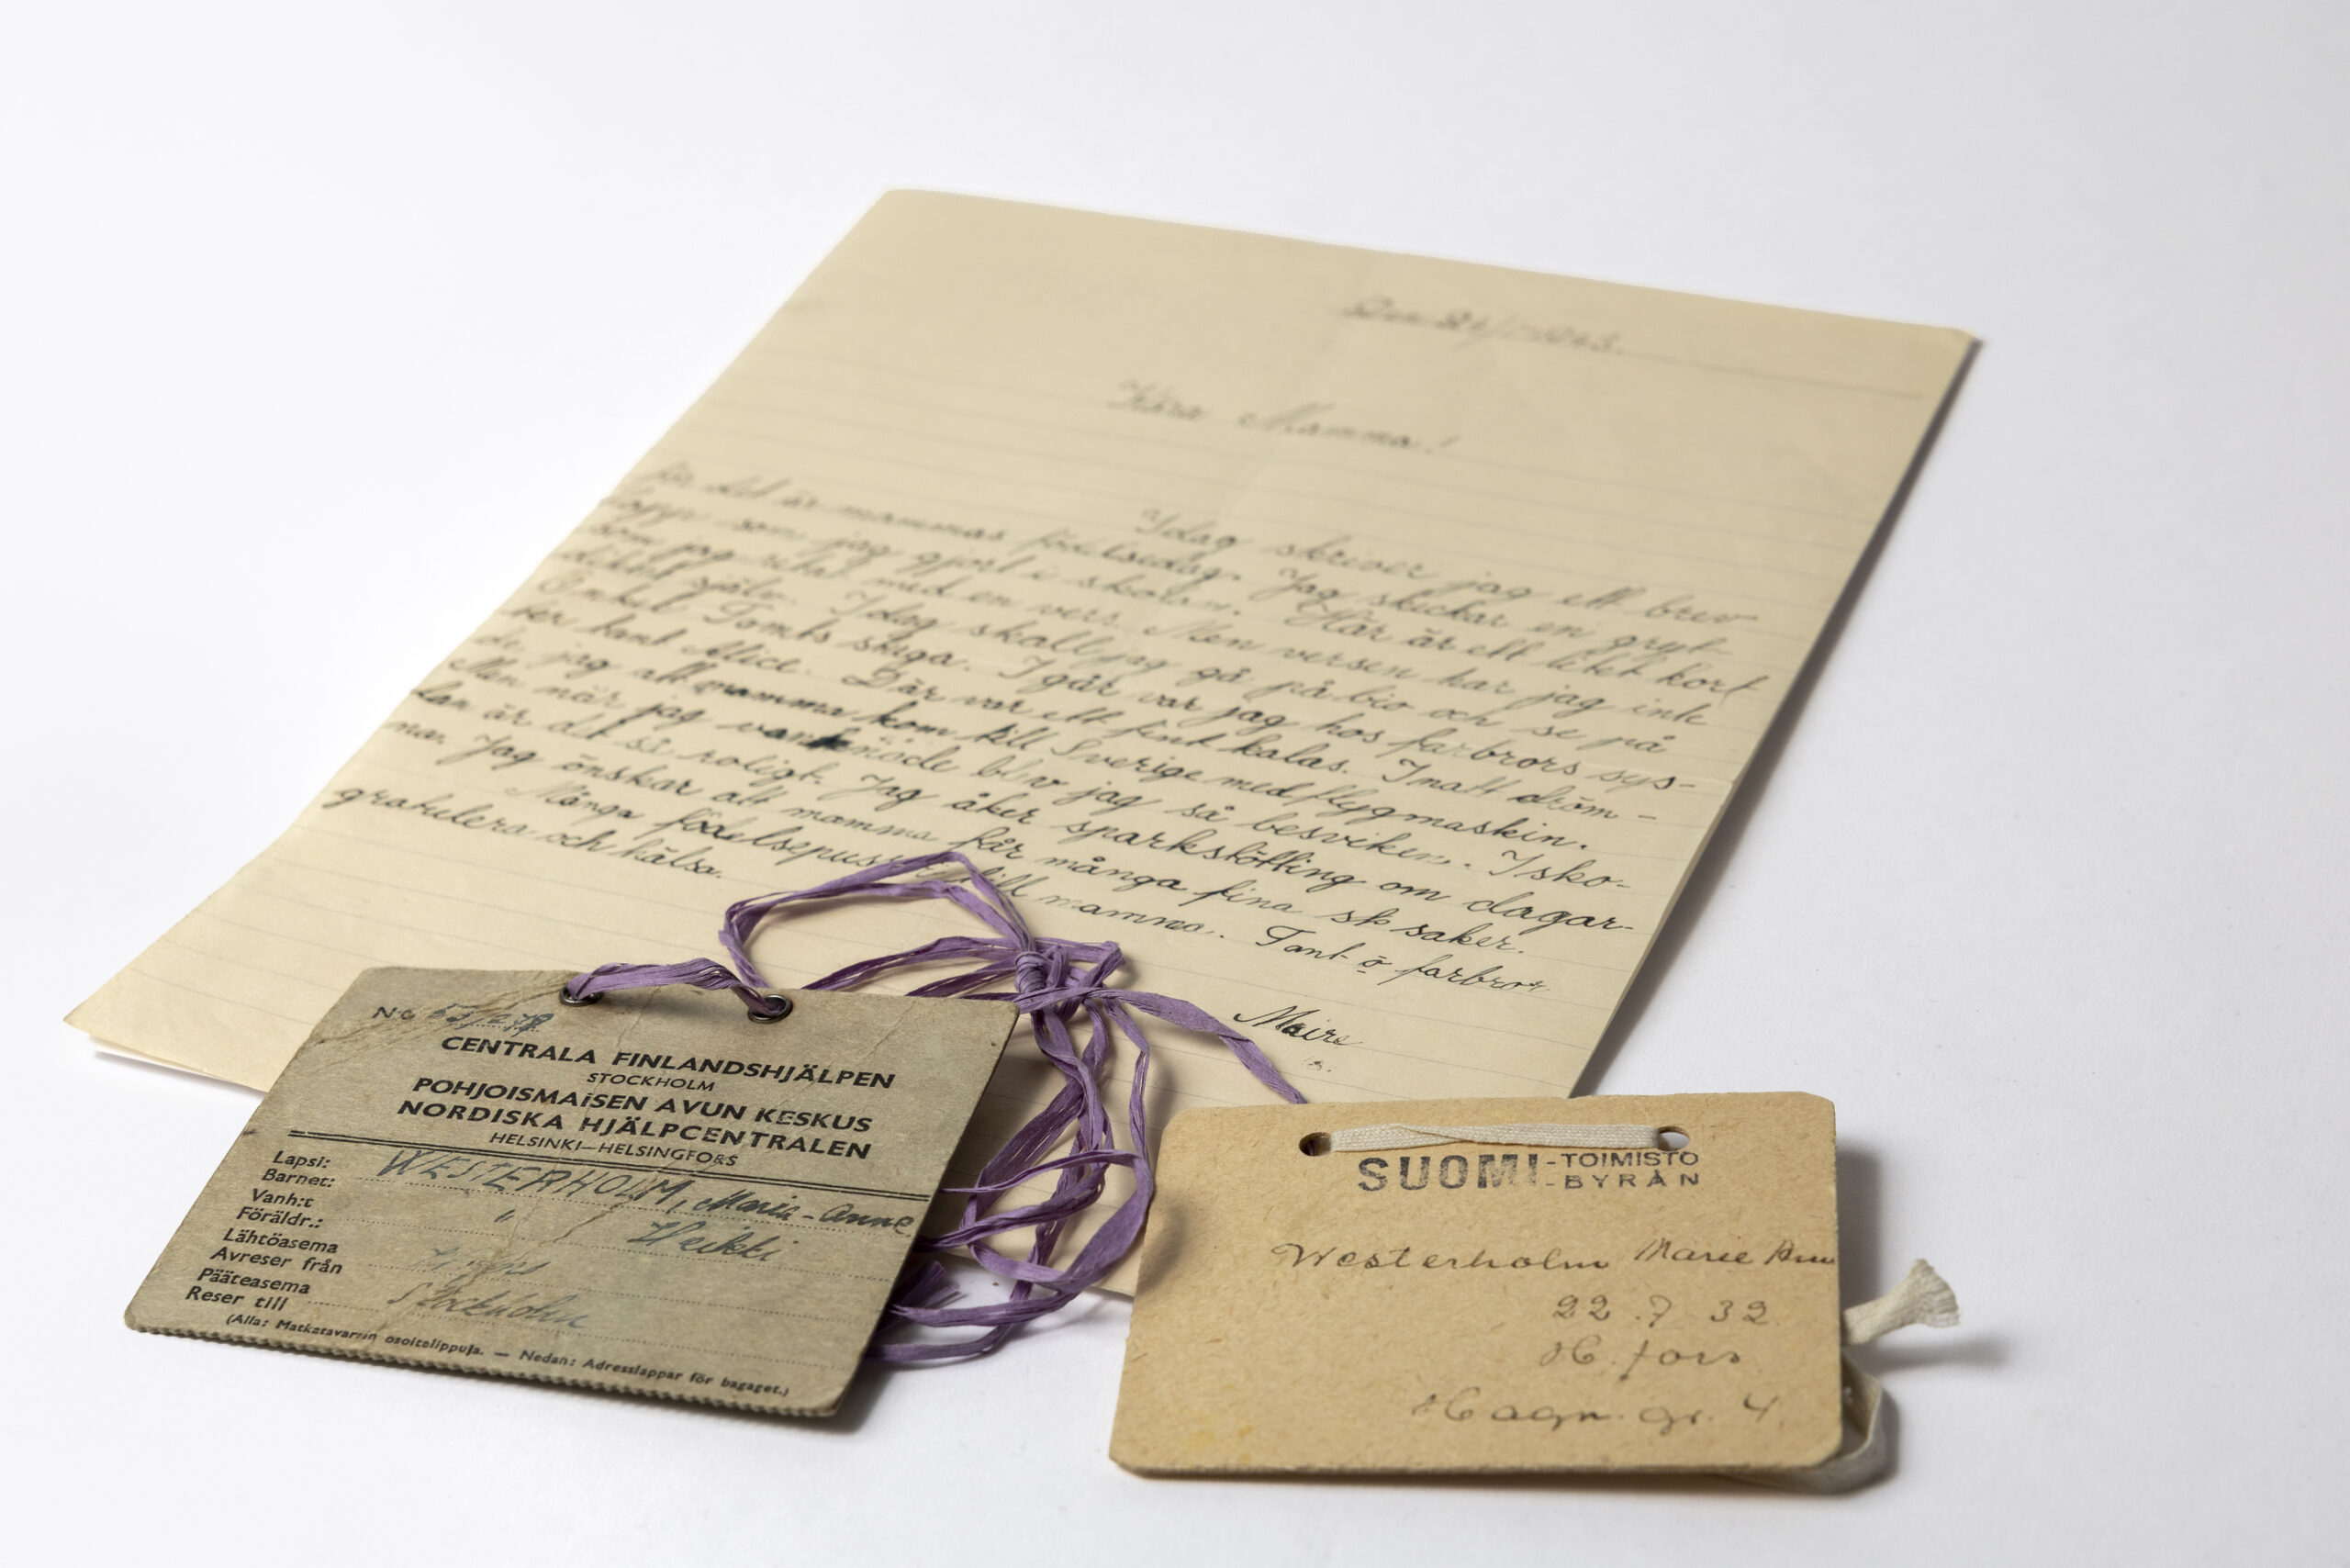 Kära Mamma!
Idag skriver jag ett brev
för det är mammas födelsedag. Jag skickar en gryt-
lapp som jag gjort i skolan. Här är ett litet kort
som jag ritat med en vers. Men versen har jag inte
diktat själv. Idag skall jag gå på bio och se på
Onkel Toms stuga. Igår var jag hos farbrors sys-
ter tant Alice. Där var ett fint kalas. Inatt dröm-
de jag att mamma kom till Sverige med flygmaskin.
Men när jag vaknade blev jag så besviken. I sko-
lan är det så roligt. Jag åker sparkstötting om dagar-
na. Jag önskar att mamma får många fina saker.
Många födelsepussar till mamma. Tant o farbror
gratulera och hälsa.
Maire
No
CENTRALA FINLANDSHJÄLPEN
STOCKHOLM
POHJOISMAISEN AVUN KESKUS
NORDISKA HJÄLPCENTRALEN
HELSINKI—HELSINGFORS
Lapsi:
Barnet: WESTERHOLM, Marie-Anne
Vanh:t
Föräldr.: " Heikki
Lähtöasema
Avreser från H:fors
Pääteasema
Reser till Stockholm
(Alla: Matkatavarain osoitelippuja. — Nedan: Adresslappar för bagaget.)
SUOMI-TOIMISTO
-BYRÅN
Westerholm Marie Ann
22.7 32
H.fors
Hagn. gr. 4.